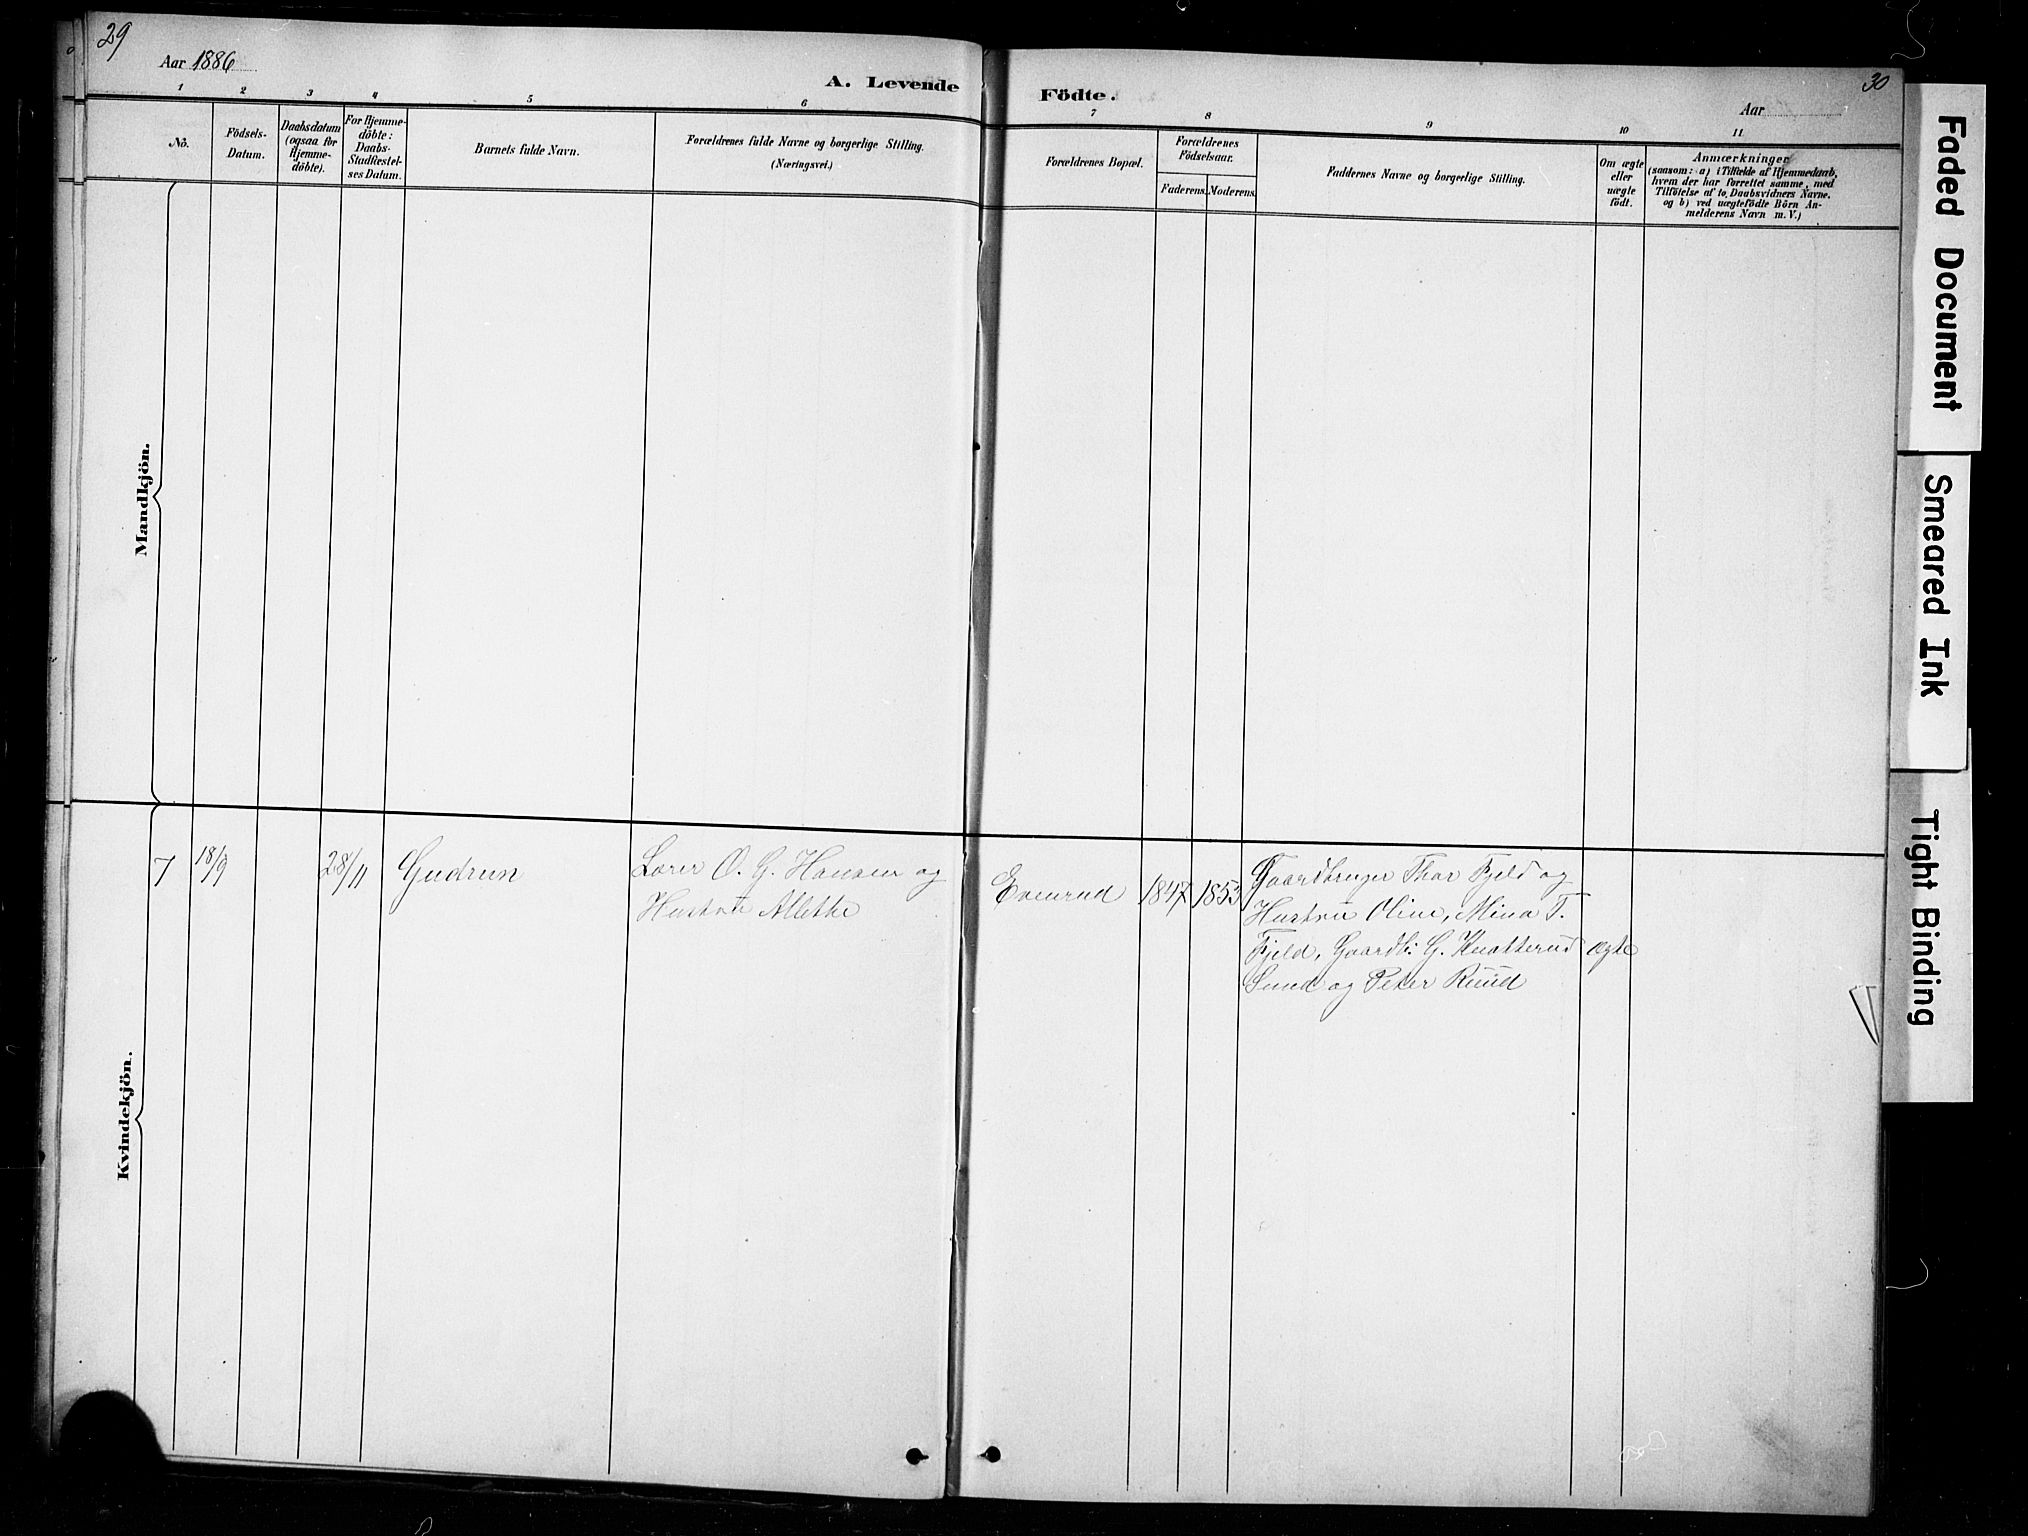 29
Aar 1886
A. Levende
1 2 3 4 5 6
No.
Födsels-
Datum.
Daabsdatum
(ogsaa for
Hjemme-
döbte).
For Hjemme-
döbte:
Daabs-
Stadfæstel-
ses Datum.
Barnets fulde Navn.
Forældrenes fulde Navne og borgerlige Stilling.
(Næringsvei.)
Mandkjön.
Kvindekjön.
7 18/9 28/11 Gudrun
Lærer O. G. Hansen og
Hustru Alethe
30
Födte.
Aar
7 8 9 10 11
Forældrenes Bopæl.
Forældrenes
Födselsaar.
Faderens. Moderens.
Faddernes Navne og borgerlige Stilling.
Om ægte
eller
uægte
födt.
Anmærkninger
(saasom: a) i Tilfælde af Hjemmedaab,
hvem der har forrettet samme, med
Tilföielse af to Daabsvidners Navne.
og b) ved uægtefödte Börn An-
melderens Navn m. V.)
Evenrud 1847 1853
Gaardbruger Thor Fjeld og
Hustru Oline, Mina T.
Fjeld, Gaardb. G. Knatterud
Sund og Peter Ruud
Ægte
Faded Document
Smeared Ink
Tight Binding